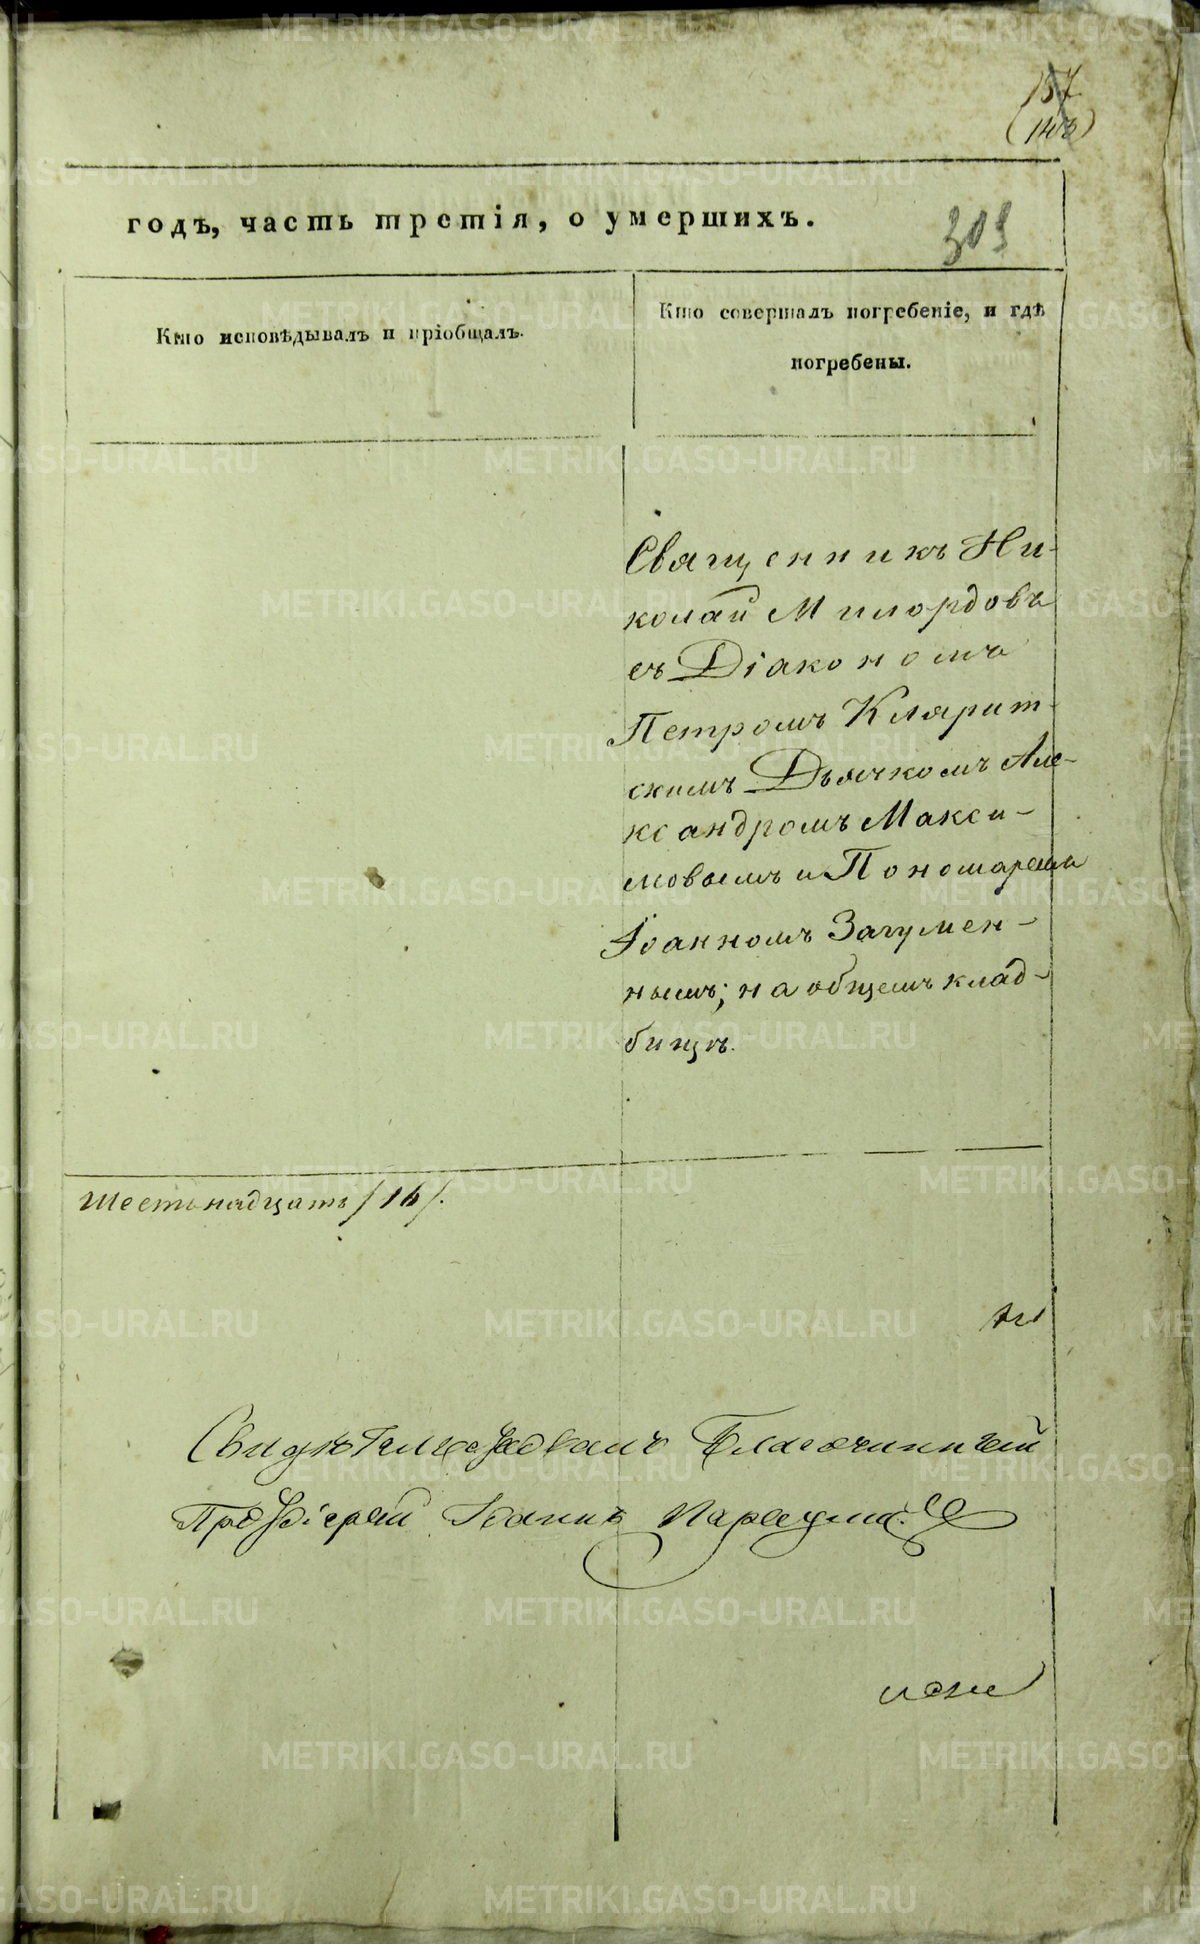 157
годѣ, часть третія, о умершихъ.
303
Кто исповѣдывалъ и пріобщалъ.
Кто совершалъ погребеніе, и гдѣ
погребены.
Священникъ Ни-
колай Милордовъ
съ Діакономъ
Петромъ Клярит-
скимъ Дьячкомъ Але-
ксандромъ Макси-
мовымъ и Пономаремъ
Іоанномъ Загумен-
нымъ; на общемъ клад-
бищѣ.
Шестьнадцать /16/.
Свидѣтельствовалъ Благочинный
Протоіерей Іоаннъ
METRIKI.GASO-URAL.RU